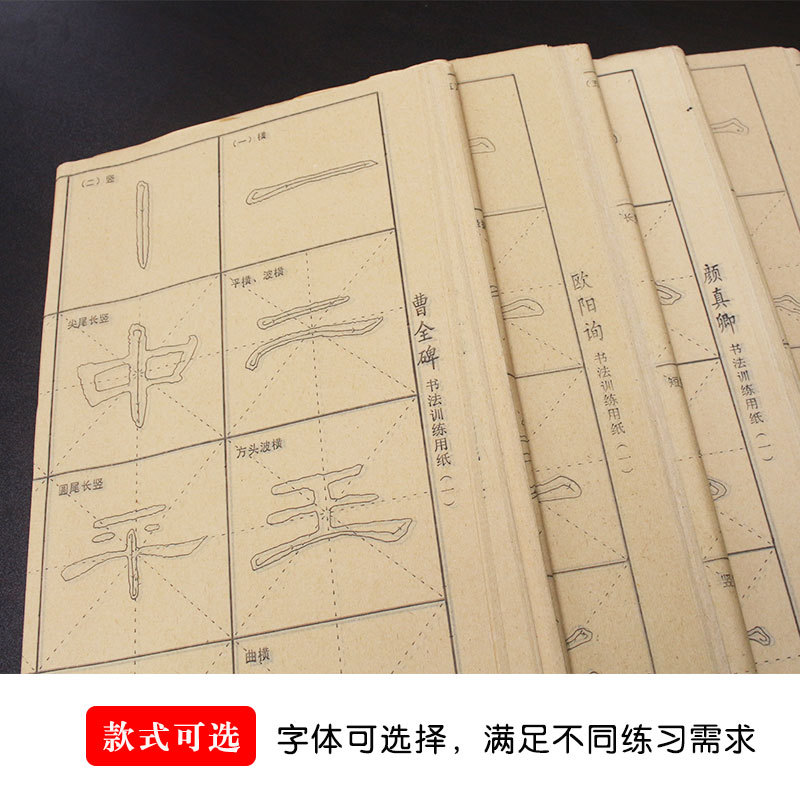 （二）竖
丨
（一）横
一
尖尾长竖
中
平横、波横
二
圆尾长竖
平
方头波横
王
曲横
曹全碑 书法训练用纸（一）
欧阳询 书法训练用纸（一）
长
短
竖
颜真卿 书法训练用纸（一）
款式可选
字体可选择，满足不同练习需求